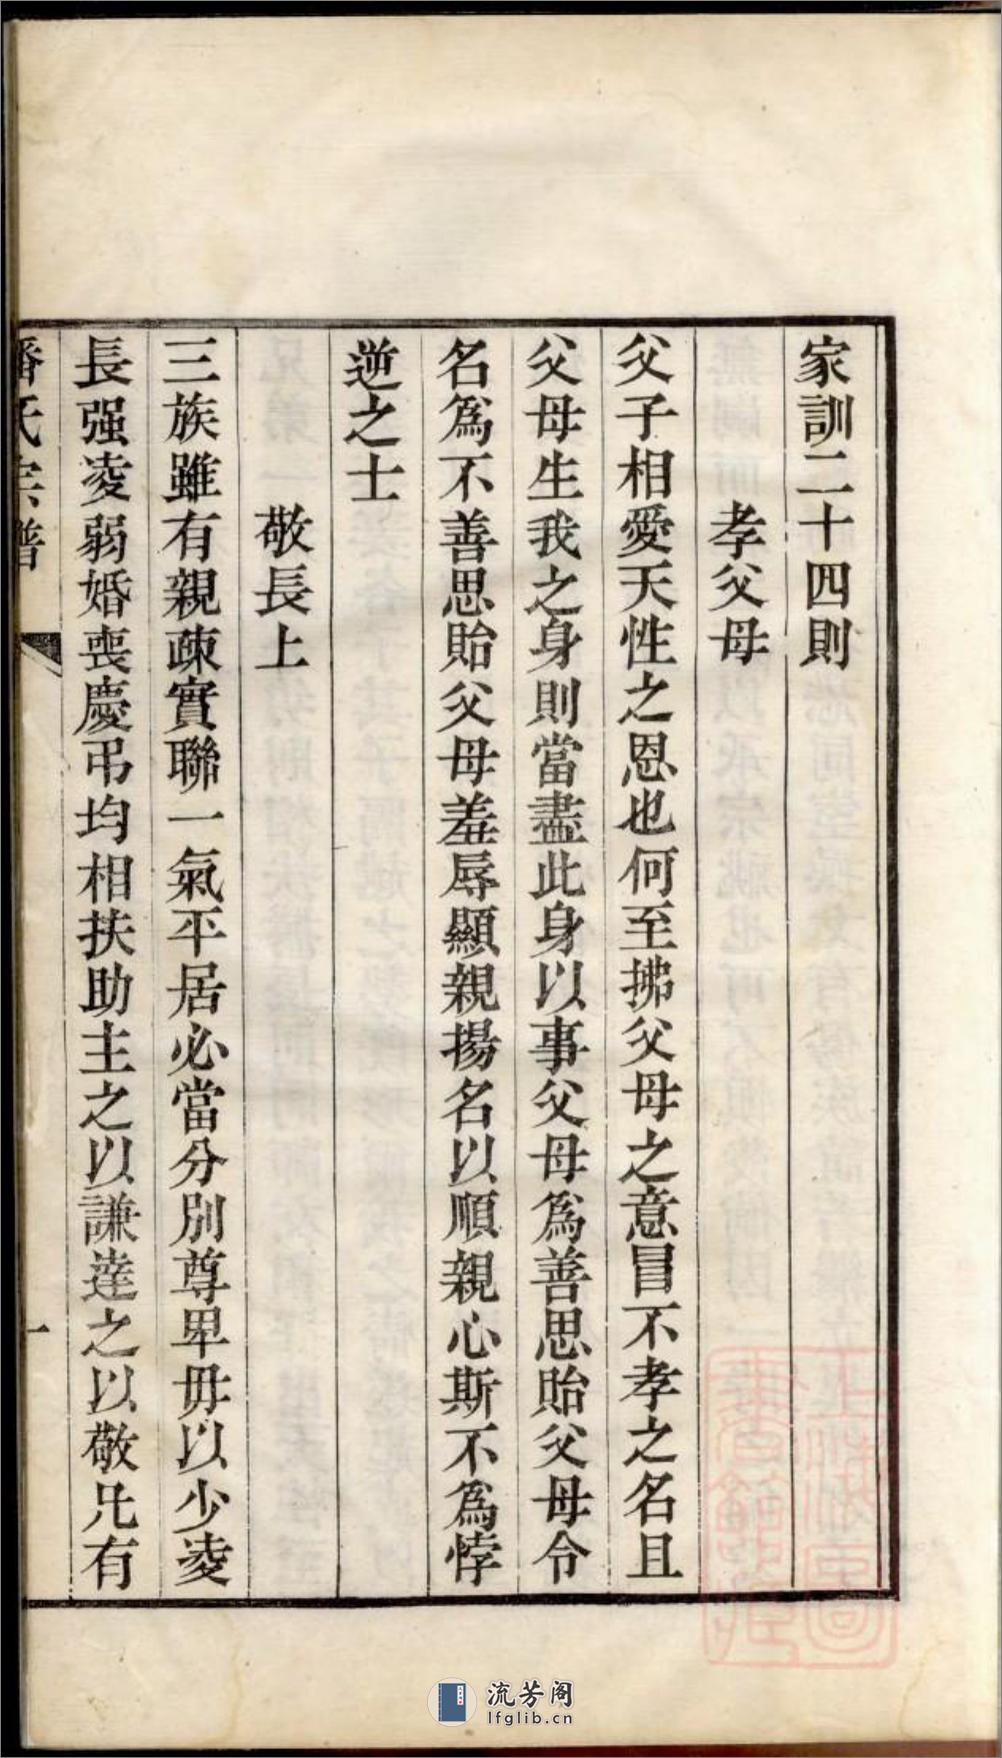 家訓二十四則
孝父母
父子相愛天性之恩也何至拂父母之意冒不孝之名且
父母生我之身則當盡此身以事父母爲善思貽父母令
名爲不善思貽父母羞辱顯親揚名以順親心斯不爲悖
逆之士
敬長上
三族雖有親疎實聯一氣平居必當分別尊卑毋以少凌
長强凌弱婚喪慶弔均相扶助主之以謙達之以敬凡有
潘氏宗譜
一
流芳阁
lfglib.cn